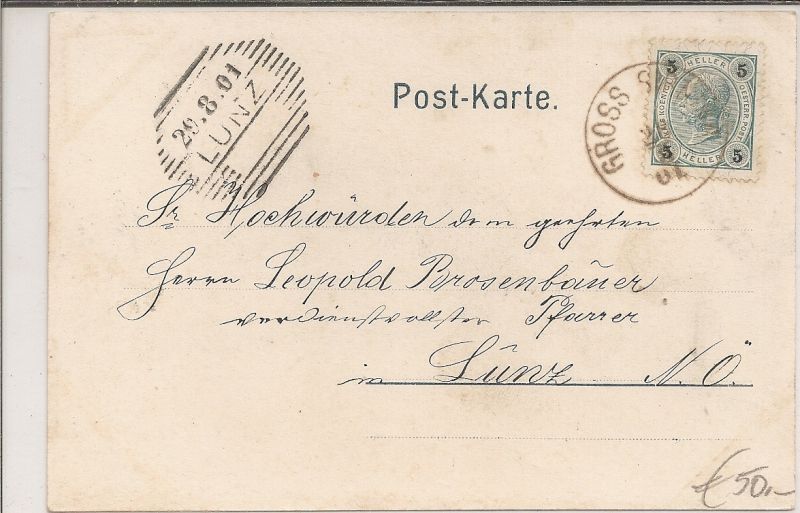 29.8.01
LUNZ
Post-Karte.
GROSS S
01
5 HELLER 5
KAIS. KOENIGL. OESTERR. POST
5 HELLER 5
Sr Hochwürden dem geehrten
Herrn Leopold Brosenbauer
verdienstvollster Pfarrer
in Lunz N.Ö.
€ 50,-